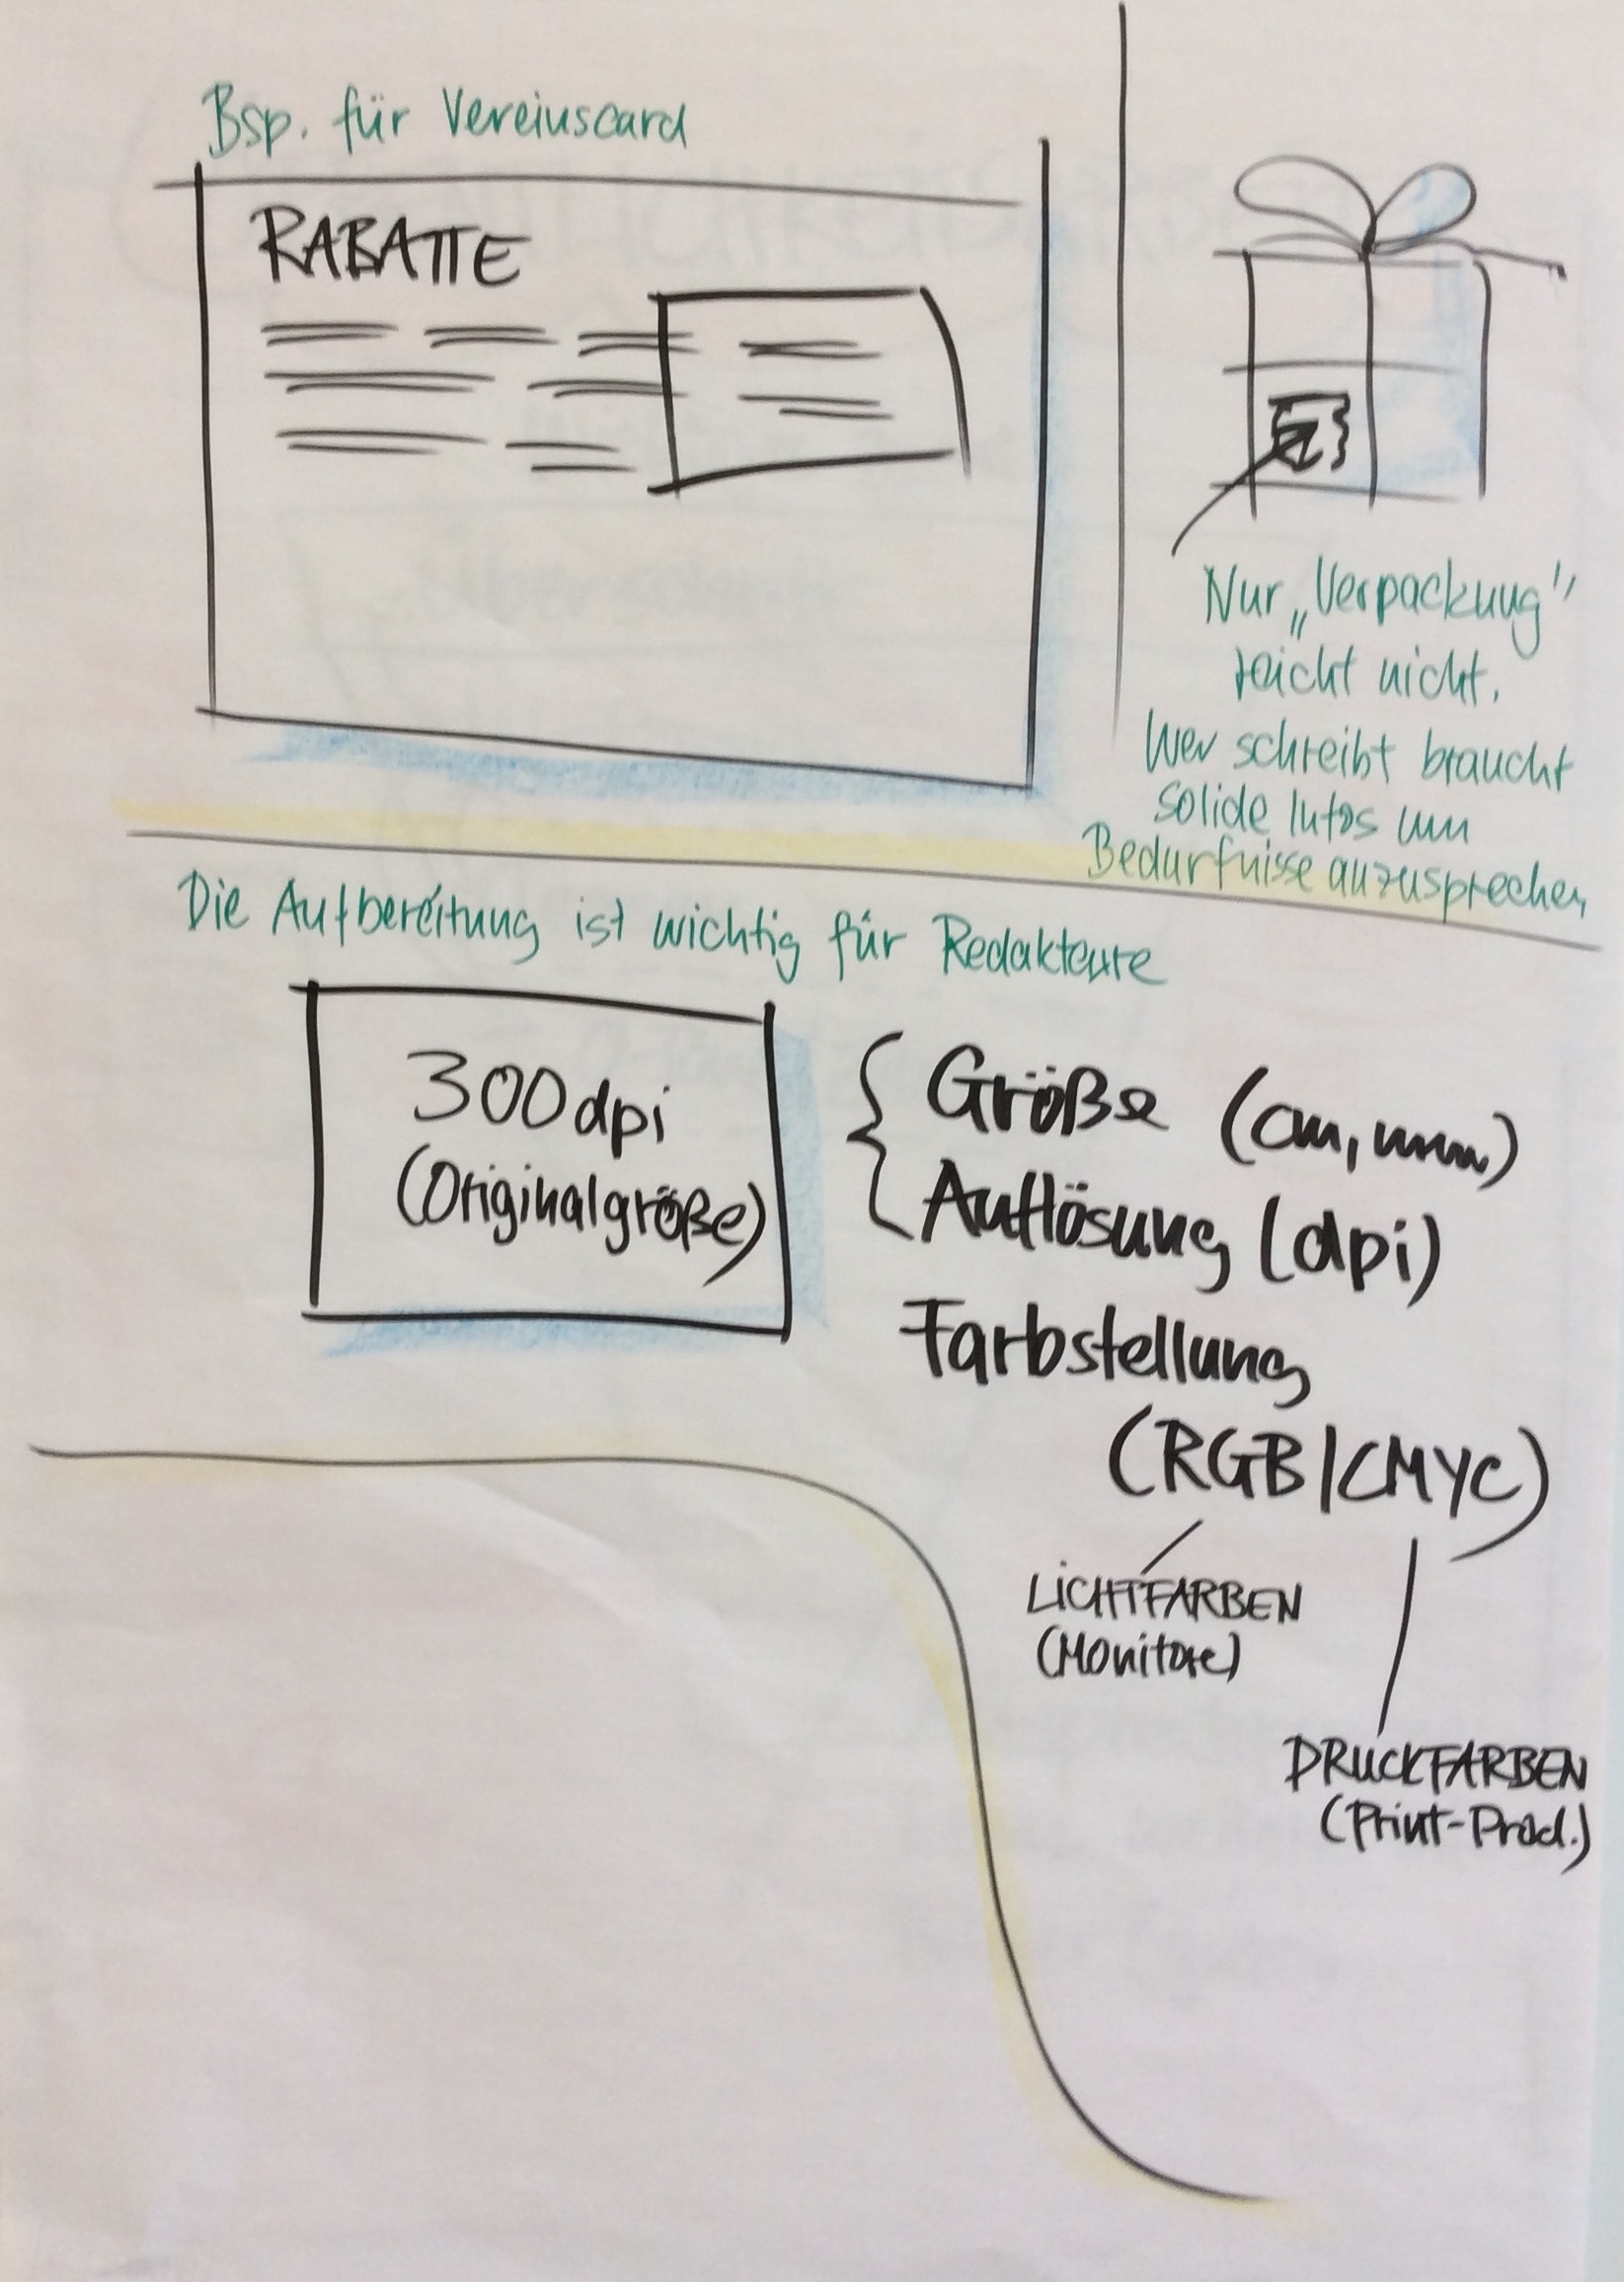 Bsp. für Vereinscard
RABATTE
Nur „Verpackung"
reicht nicht.
Wer schreibt braucht
solide Infos um
Bedürfnisse anzusprechen
Die Aufbereitung ist wichtig für Redakteure
300dpi
(Originalgröße)
Größe (cm, mm)
Auflösung (dpi)
Farbstellung
(RGB/CMYC)
LiCHTFARBEN
(Monitore)
DRUCKFARBEN
(Print-Prod.)